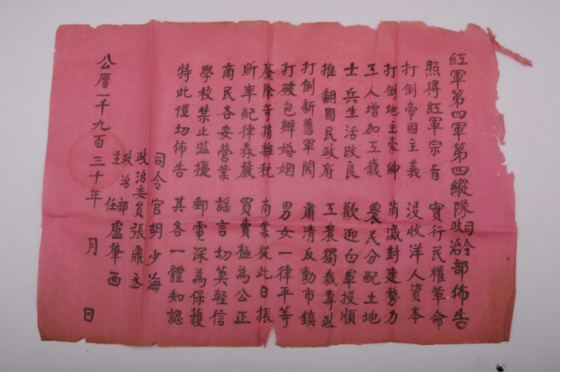 紅軍第四軍第四縱隊司令政治部佈告
照得紅軍宗旨 實行民權革命
打倒帝國主義 沒收洋人資本
打倒地主豪紳 消滅封建勢力
工人增加工 農民分配土地
士兵生活改良 歡迎白軍投順
推翻國民政府 工農獨裁專政
打倒新舊軍閥 肅清反動市鎮
打破包辦婚姻 男女一律平等
廢除苛捐雜稅 商業從此日振
所率紀律森嚴 買賣極為公正
商民各安營業 謠言切莫輕信
學校禁止滋擾 郵電深為保護
特此愷切佈告 其各一體知認
司令官胡少海
政治委員張鼎丞
政治部主任盧肇西
公厯一千九百三十年 月 日